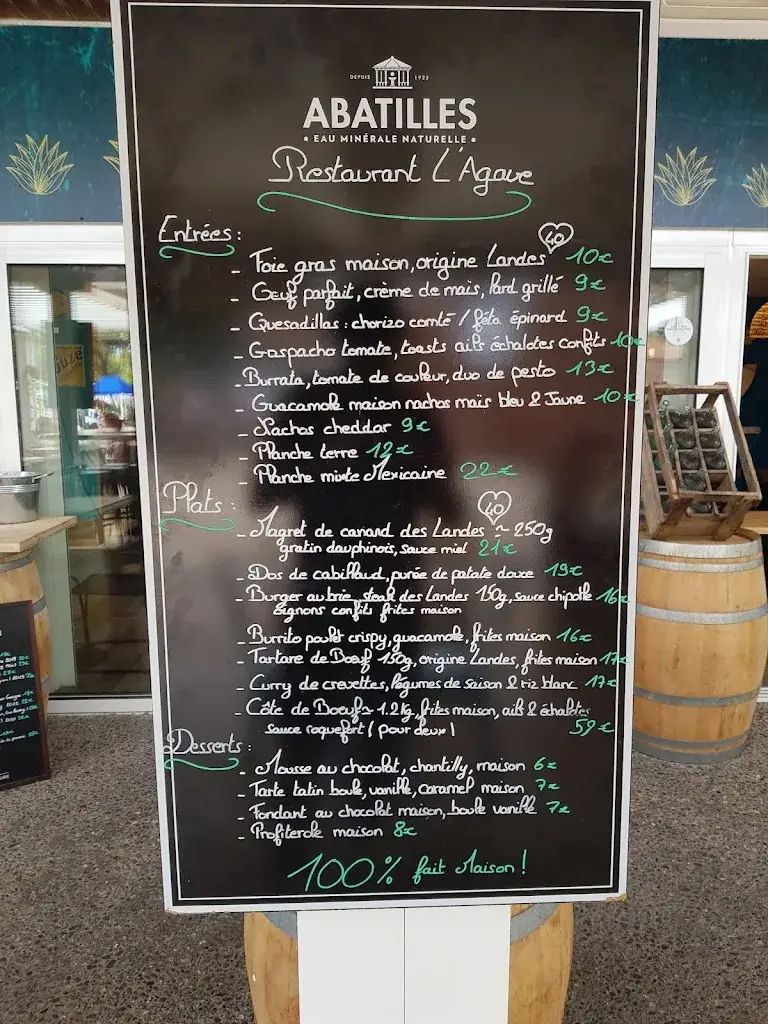 DEPUIS 1925
ABATILLES
• EAU MINÉRALE NATURELLE •
Restaurant L'Agave
Entrées :
40
- Foie gras maison, origine Landes 10€
- Oeuf parfait, crème de maïs, lard grillé 9€
- Quesadillas : chorizo comté / féta épinard 9€
- Gaspacho tomate, toasts ails échalotes confits 10€
- Burrata, tomate de couleur, duo de pesto 13€
- Guacamole maison nachos maïs bleu & Jaune 10€
- Nachos cheddar 9€
- Planche terre 12€
- Planche mixte Mexicaine 22€
Plats :
40
- Magret de canard des Landes ~ 250g
gratin dauphinois, sauce miel 21€
- Dos de cabillaud, purée de patate douce 19€
- Burger au brie, steak des Landes 150g, sauce chipotle 16€
oignons confits frites maison
- Burrito poulet crispy, guacamole, frites maison 16€
- Tartare de Boeuf 150g, origine Landes, frites maison 17€
- Curry de crevettes, légumes de saison & riz blanc 17€
- Côte de Boeuf ~ 1.2kg, frites maison, ails & échalotes
sauce roquefort ( pour deux ) 59€
Desserts :
- Mousse au chocolat, chantilly, maison 6€
- Tarte tatin boule, vanille, caramel maison 7€
- Fondant au chocolat maison, boule vanille 7€
- Profiterole maison 8€
100% fait Maison !